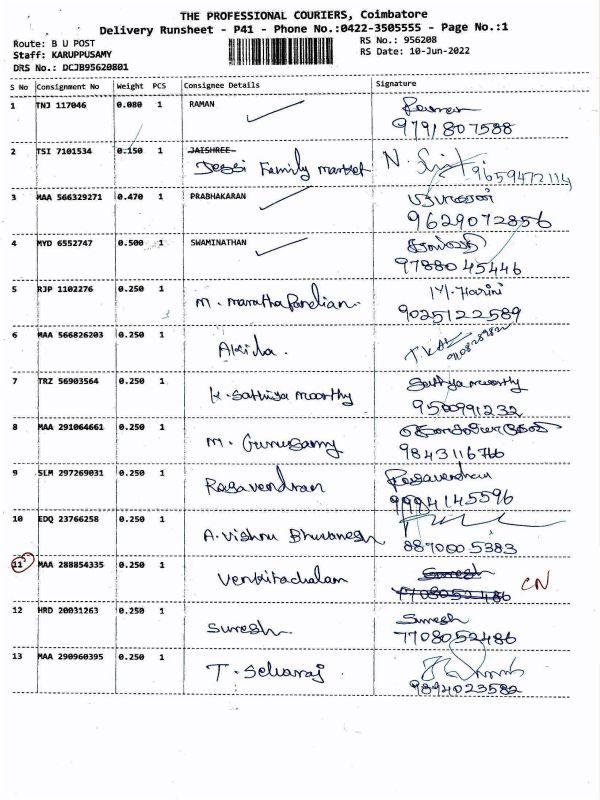 THE PROFESSIONAL COURIERS, Coimbatore
Delivery Runsheet - P41 - Phone No.:0422-3505555 - Page No.:1
Route: B U POST
RS No.: 956208
Staff: KARUPPUSAMY
RS Date: 10-Jun-2022
DRS No.: DCJB95620801
S No Consignment No Weight PCS Consignee Details Signature
1 TNJ 117046 0.080 1 RAMAN Raman
9791807588
2 TSI 7101534 0.150 1 JAISHREE
Jessi Family market
9659472114
3 MAA 566329271 0.470 1 PRABHAKARAN
9629072856
4 MYD 6552747 0.500 1 SWAMINATHAN
9788045446
5 RJP 1102276 0.250 1 M. Harini
M. Maratha Pandian
9025122589
6 MAA 566826203 0.250 1
Akila.
7 TRZ 56903564 0.250 1 Sathya moorthy
K. Sathiya moorthy
9500991232
8 MAA 291064661 0.250 1
M. Gurusamy
9843116766
9 SLM 297269031 0.250 1 Ragavendran
Ragavendran
9994145596
10 EDQ 23766258 0.250 1
A. Vishnu Bhuvanesh
8870005383
11 MAA 288854335 0.250 1 Suresh
Venkitachalam CN
7708052486
12 HRD 20031263 0.250 1 Suresh
Suresh
7708052486
13 MAA 290960395 0.250 1
T. Selvaraj
9894023582